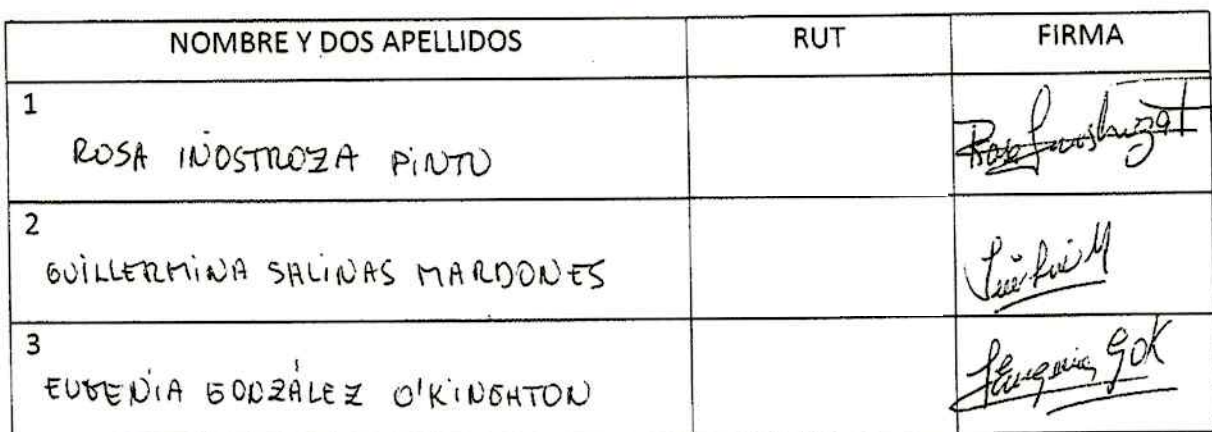 NOMBRE Y DOS APELLIDOS RUT FIRMA
1
ROSA INOSTROZA PINTO
2
GUILLERMINA SALINAS MARDONES
3
EUGENIA GONZÁLEZ O'KINGHTON
Eugenia GOK